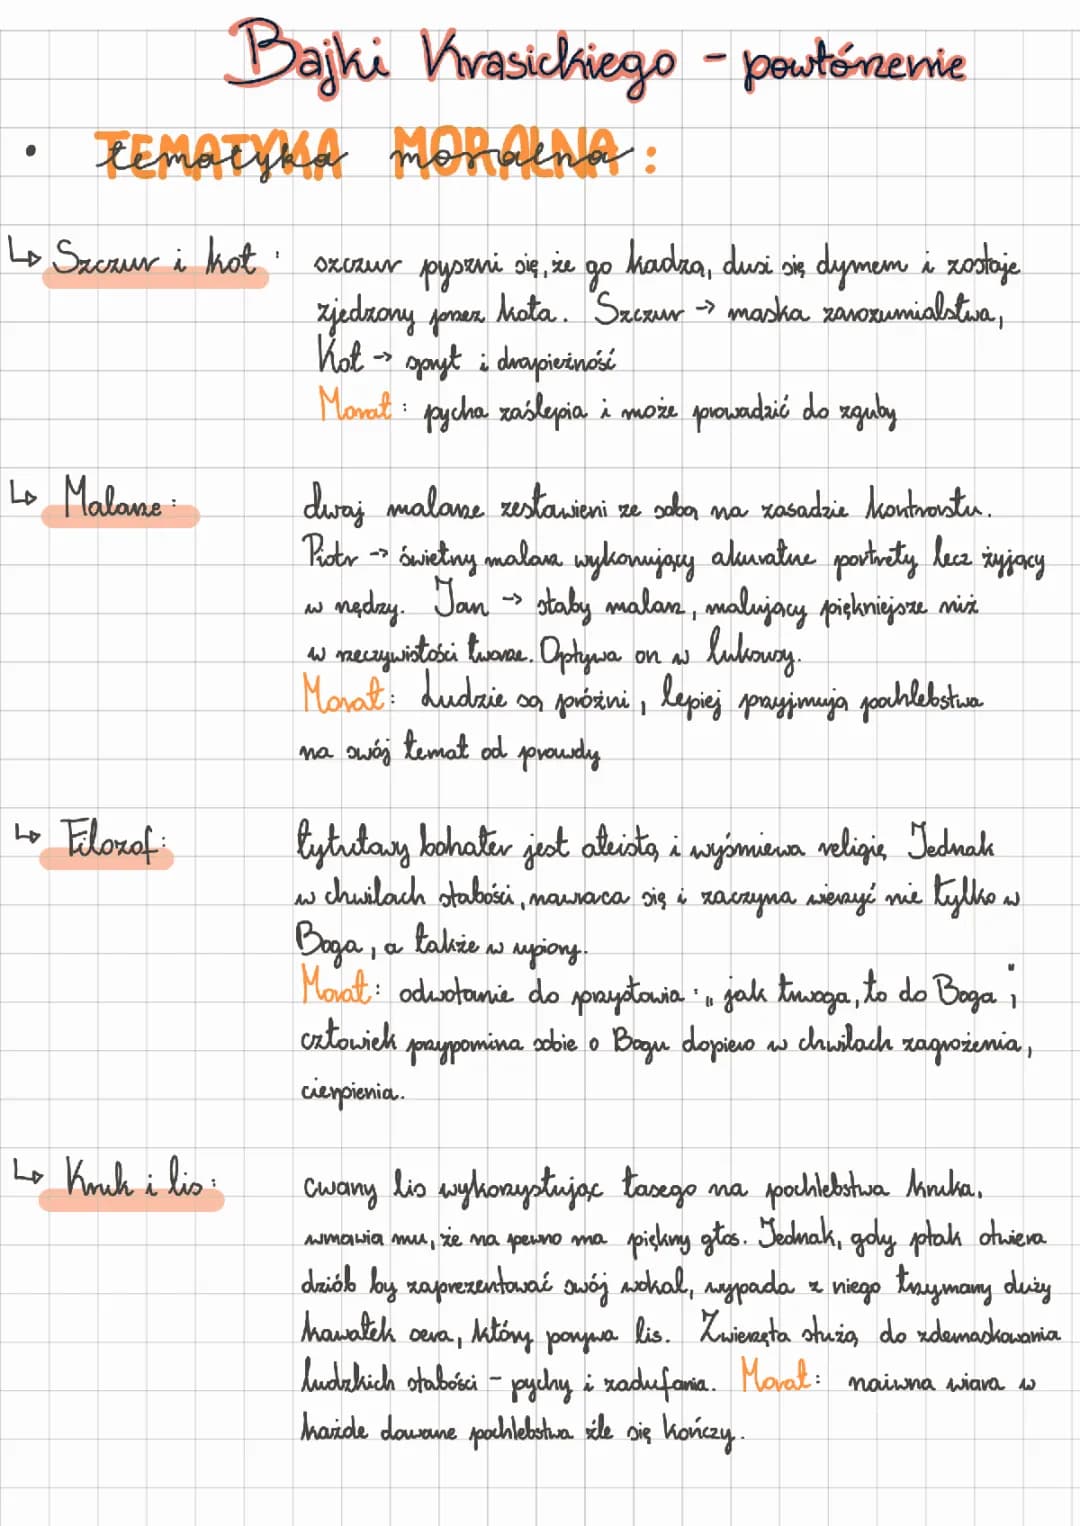 Bajki Krasickiego - powtórzenie
• tematyka moralna:
↳ Szczur i kot: szczur pyszni się, że go kadzą, dusi się dymem i zostaje
zjedzony przez kota. Szczur → maska zarozumialstwa,
Kot → spryt i drapieżność
Morał: pycha zaślepia i może prowadzić do zguby
↳ Malarze: dwaj malarze zestawieni ze sobą na zasadzie kontrastu.
Piotr → świetny malarz wykonujący akuratne portrety lecz żyjący
w nędzy. Jan → słaby malarz, malujący piękniejsze niż
w rzeczywistości twarze. Opływa on w luksusy.
Morał: Ludzie są próżni, lepiej przyjmują pochlebstwa
na swój temat od prawdy
↳ Filozof: tytułowy bohater jest ateistą i wyśmiewa religię. Jednak
w chwilach słabości, nawraca się i zaczyna wierzyć nie tylko w
Boga, a także w upiory.
Morał: odwołanie do przysłowia: „jak trwoga, to do Boga";
człowiek przypomina sobie o Bogu dopiero w chwilach zagrożenia,
cierpienia.
↳ Kruk i lis: cwany lis wykorzystując łasego na pochlebstwa kruka,
wmawia mu, że na pewno ma piękny głos. Jednak, gdy ptak otwiera
dziób by zaprezentować swój wokal, wypada z niego trzymany duży
kawałek sera, który porywa lis. Zwierzęta służą do zdemaskowania
ludzkich słabości - pychy i zadufania. Morał: naiwna wiara w
każde dawane pochlebstwa źle się kończy.